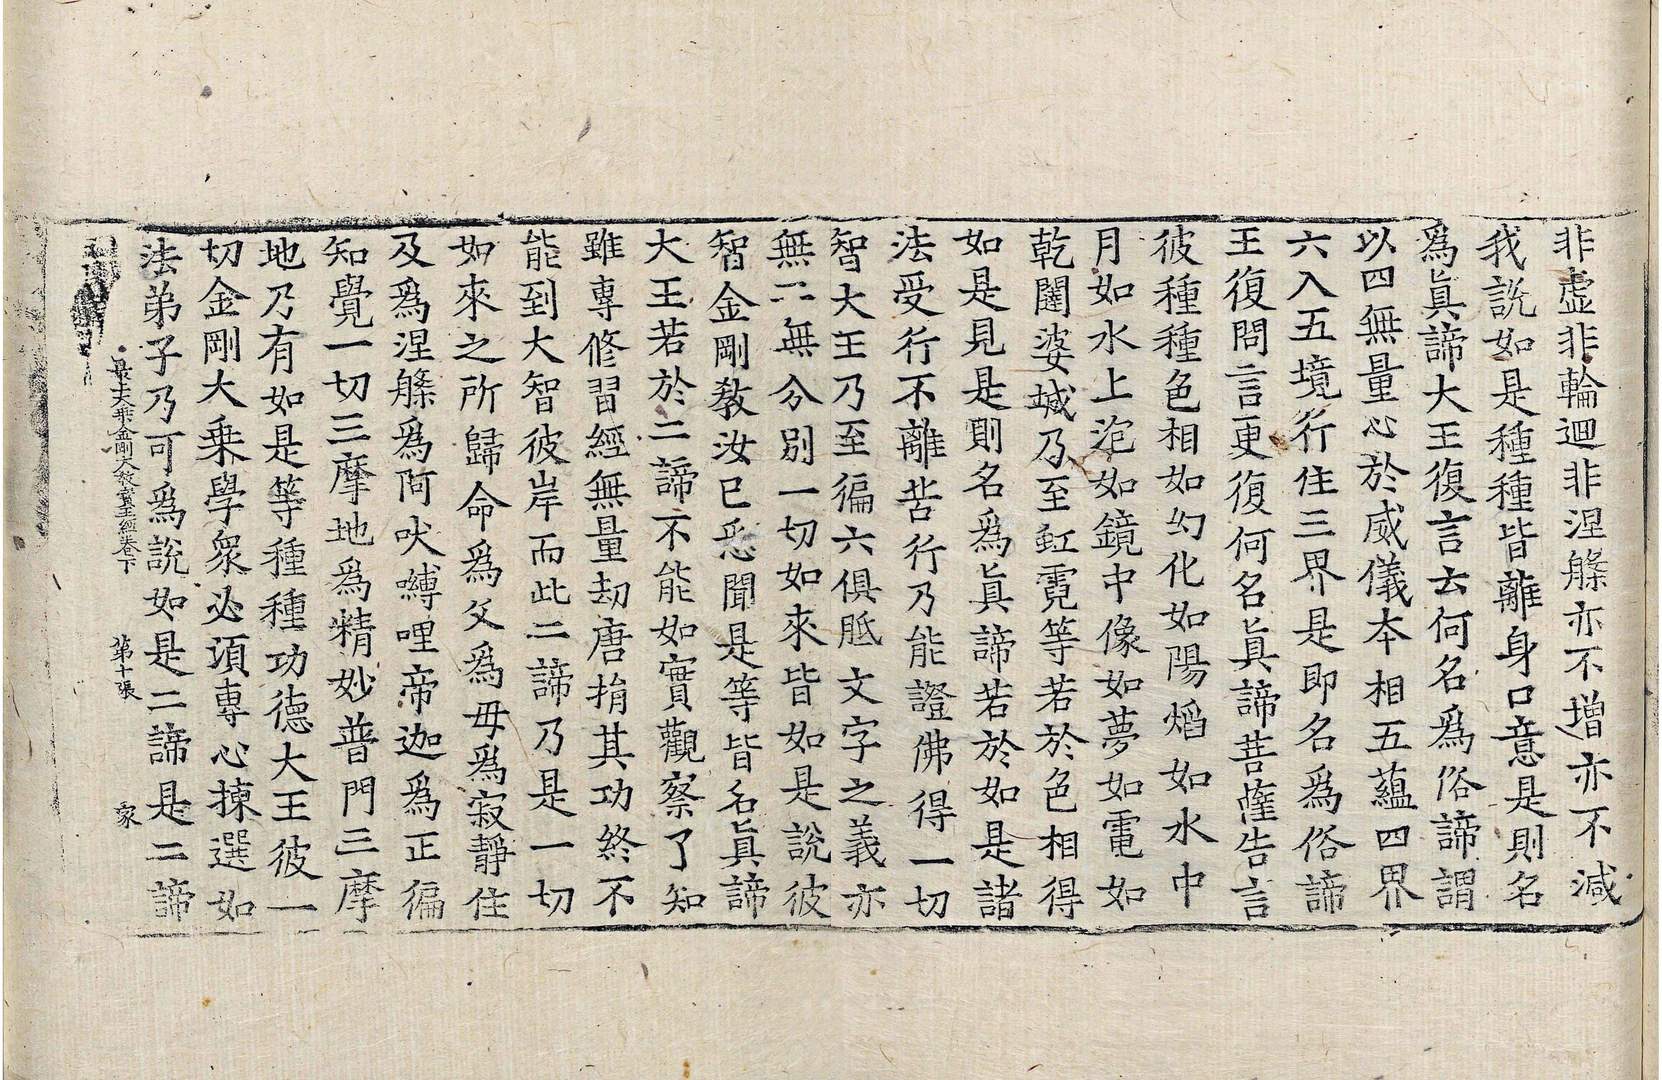 非虛非輪迴非涅槃亦不增亦不減
我說如是種種皆離身口意是則名
爲眞諦大王復言去何名爲俗諦謂
以四無量心於威儀本相五蘊四界
六入五境行住三界是即名爲俗諦
王復問言更復何名眞諦菩薩告言
彼種種色相如幻化如陽熖如水中
月如水上泡如鏡中像如夢如電如
乾闥婆城乃至虹霓等若於色相得
如是見是則名爲眞諦若於如是諸
法受行不離苦行乃能證佛得一切
智大王乃至徧六俱胝文字之義亦
無二無分別一切如來皆如是說彼
智金剛敎汝已悉聞是等皆名眞諦
大王若於二諦不能如實觀察了知
雖專修習經無量劫唐捐其功終不
能到大智彼岸而此二諦乃是一切
如來之所歸命爲父爲母爲寂靜住
及爲涅槃爲阿吠嚩哩帝迦爲正徧
知覺一切三摩地爲精妙普門三摩
地乃有如是等種種功德大王彼一
切金剛大乘學衆必須專心揀選如
法弟子乃可爲說如是二諦是二諦
最大乘金剛大敎寶王經卷下 第十張 家